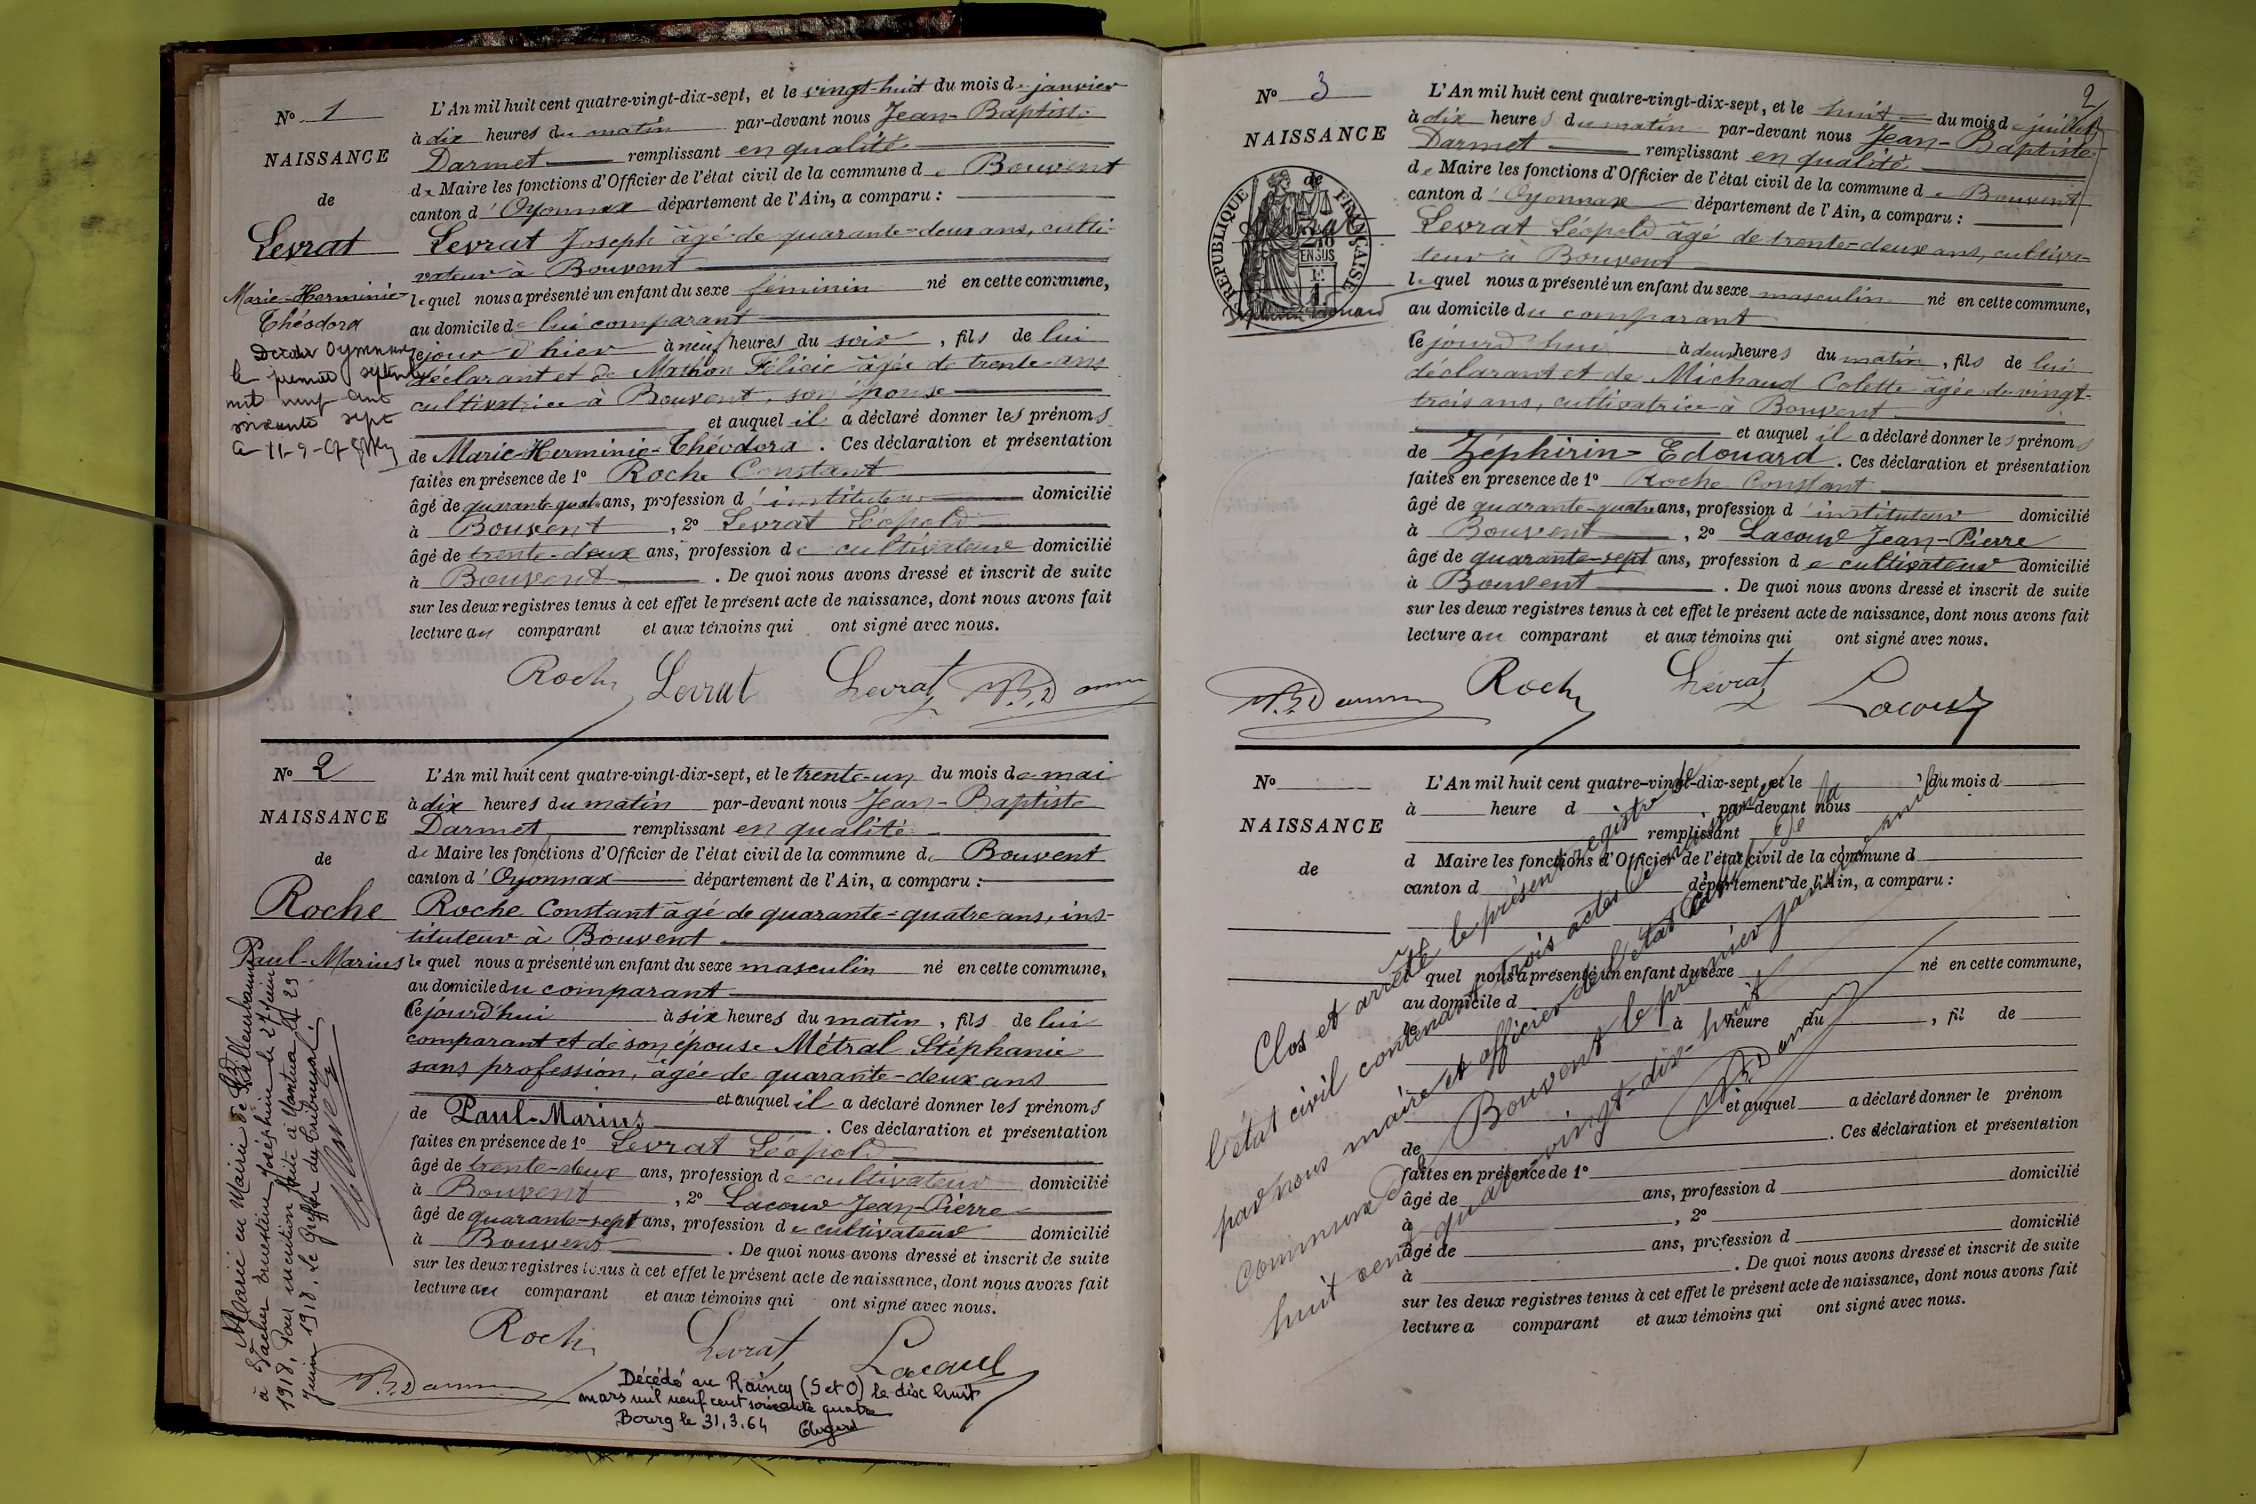 N° 1
NAISSANCE
de
Levrat
Marie-Herminie-
Théodora
Décédée Oyonnax
le premier septembre
mil neuf cent
soixante sept
L'An mil huit cent quatre-vingt-dix-sept, et le vingt-huit du mois de janvier
à dix heures du matin par-devant nous Jean-Baptiste
Darmet remplissant en qualité
de Maire les fonctions d'Officier de l'état civil de la commune de Bouvent
canton d'Oyonnax département de l'Ain, a comparu :
Levrat Joseph âgé de quarante-deux ans, culti-
vateur à Bouvent
lequel nous a présenté un enfant du sexe féminin né en cette commune,
au domicile de lui comparant
le jour d'hier à neuf heures du soir, fils de lui
déclarant et de Mathon Félicie âgée de trente ans
cultivatrice à Bouvent, son épouse
et auquel il a déclaré donner les prénoms
de Marie-Herminie-Théodora. Ces déclaration et présentation
faites en présence de 1° Roche Constant
âgé de quarante-quatre ans, profession d'instituteur domicilié
à Bouvent, 2° Levrat Léopold
âgé de trente-deux ans, profession de cultivateur domicilié
à Bouvent. De quoi nous avons dressé et inscrit de suite
sur les deux registres tenus à cet effet le présent acte de naissance, dont nous avons fait
lecture au comparant et aux témoins qui ont signé avec nous.
Roche Levrat Levrat J.B. Darmet
N° 2
NAISSANCE
de
Roche
Paul-Marius
Marié en Mairie de
à Vacher Ernestine Joséphine le 27 juin
1918, Pour mention faite à Nantua le 29
juin 1918. Le Greffier du Tribunal
L'An mil huit cent quatre-vingt-dix-sept, et le trente-un du mois de mai
à dix heures du matin par-devant nous Jean-Baptiste
Darmet, remplissant en qualité
de Maire les fonctions d'Officier de l'état civil de la commune de Bouvent
canton d'Oyonnax département de l'Ain, a comparu :
Roche Constant âgé de quarante-quatre ans, ins-
tituteur à Bouvent
lequel nous a présenté un enfant du sexe masculin né en cette commune,
au domicile du comparant
Cejourd'hui à six heures du matin, fils de lui
comparant et de son épouse Métral Stéphanie
sans profession, âgée de quarante-deux ans
et auquel il a déclaré donner les prénoms
de Paul-Marius. Ces déclaration et présentation
faites en présence de 1° Levrat Léopold
âgé de trente-deux ans, profession de cultivateur domicilié
à Bouvent, 2° Lacour Jean-Pierre
âgé de quarante-sept ans, profession de cultivateur domicilié
à Bouvent. De quoi nous avons dressé et inscrit de suite
sur les deux registres tenus à cet effet le présent acte de naissance, dont nous avons fait
lecture au comparant et aux témoins qui ont signé avec nous.
Roche Levrat Lacour
J.B. Darmet
Décédé au Raincy (S et O) le dix huit
mars mil neuf cent soixante quatre
Bourg le 31.3.64
2
N° 3
NAISSANCE
de
RÉPUBLIQUE FRANÇAISE
2/10
EN SUS
Levrat
Zéphirin Edouard
L'An mil huit cent quatre-vingt-dix-sept, et le huit du mois de juillet
à dix heures du matin par-devant nous Jean-Baptiste
Darmet remplissant en qualité
de Maire les fonctions d'Officier de l'état civil de la commune de Bouvent
canton d'Oyonnax département de l'Ain, a comparu :
Levrat Léopold âgé de trente-deux ans, cultiva-
teur à Bouvent
lequel nous a présenté un enfant du sexe masculin né en cette commune,
au domicile du comparant
Cejourd'hui à deux heures du matin, fils de lui
déclarant et de Michaud Colette âgée de vingt-
trois ans, cultivatrice à Bouvent
et auquel il a déclaré donner les prénoms
de Zéphirin-Edouard. Ces déclaration et présentation
faites en présence de 1° Roche Constant
âgé de quarante-quatre ans, profession d'instituteur domicilié
à Bouvent, 2° Lacour Jean-Pierre
âgé de quarante-sept ans, profession de cultivateur domicilié
à Bouvent. De quoi nous avons dressé et inscrit de suite
sur les deux registres tenus à cet effet le présent acte de naissance, dont nous avons fait
lecture au comparant et aux témoins qui ont signé avec nous.
J.B. Darmet Roche Levrat Lacour
N°
NAISSANCE
de
L'An mil huit cent quatre-vingt-dix-sept, et le du mois d
à heure d par-devant nous
remplissant
d Maire les fonctions d'Officier de l'état civil de la commune d
canton d département de l'Ain, a comparu :
le quel nous a présenté un enfant du sexe né en cette commune,
au domicile d
le à heure du , fil de
et auquel a déclaré donner le prénom
de . Ces déclaration et présentation
faites en présence de 1°
âgé de ans, profession d domicilié
à , 2°
âgé de ans, profession d domicilié
à . De quoi nous avons dressé et inscrit de suite
sur les deux registres tenus à cet effet le présent acte de naissance, dont nous avons fait
lecture a comparant et aux témoins qui ont signé avec nous.
Clos et arrêté le présent registre de
l'état civil contenant trois actes de naissance
par nous maire et officier de l'état civil de la
commune de Bouvent le premier janvier mil
huit cent quatre-vingt-dix-huit
J.B. Darmet